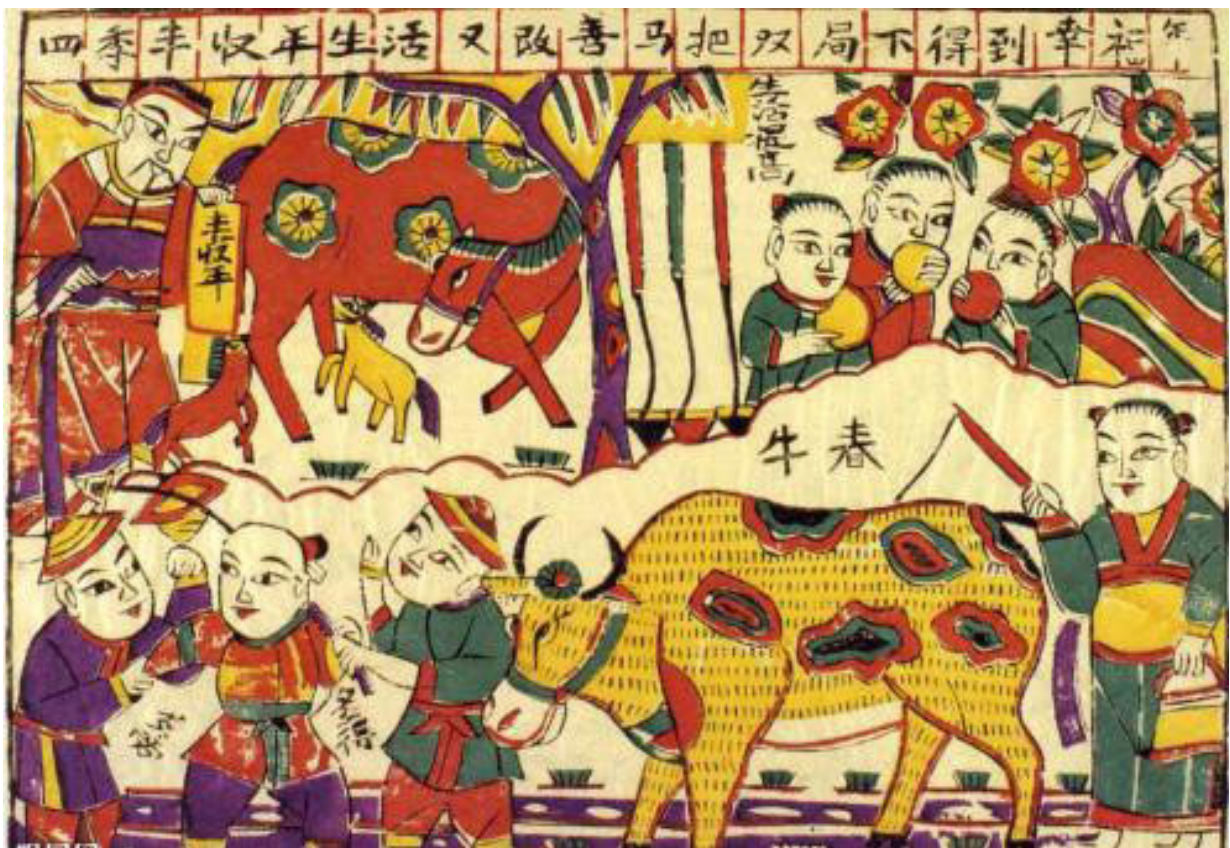 四季丰收年生活又改善马把双局下得到幸
生活提高
丰收年
春牛